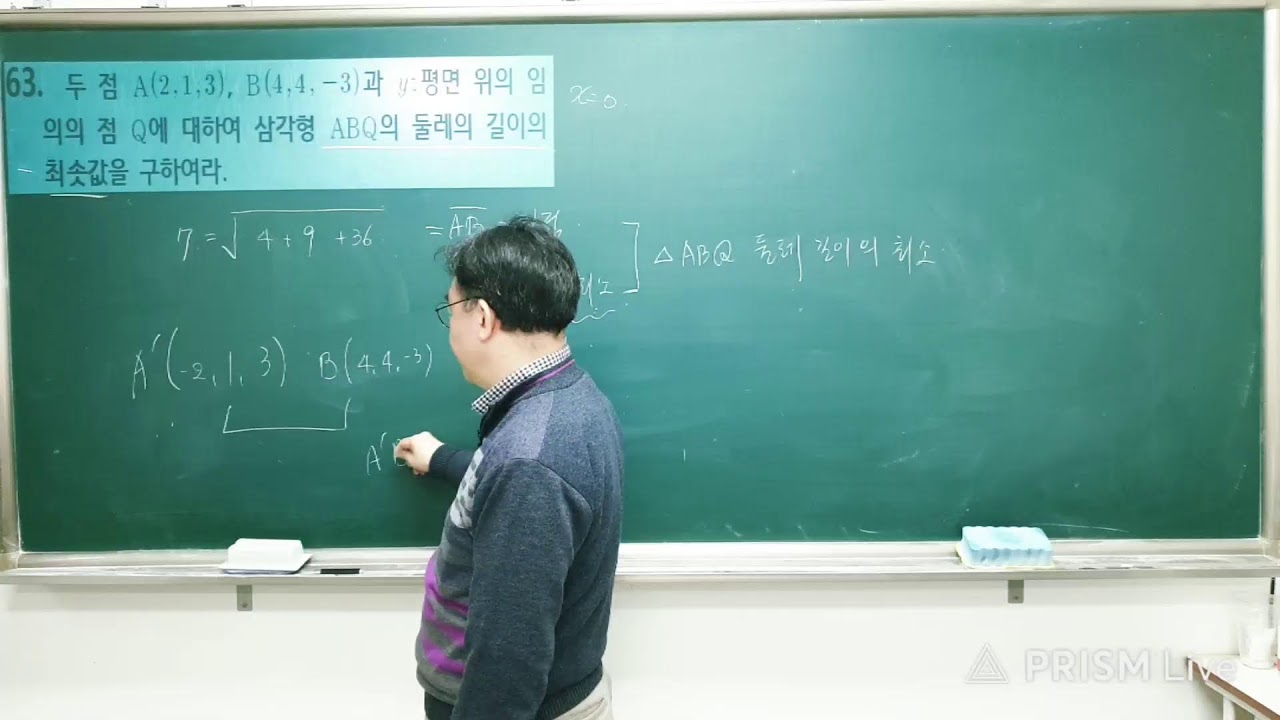 63. 두 점 A(2,1,3), B(4,4,-3)과 yz평면 위의 임
의의 점 Q에 대하여 삼각형 ABQ의 둘레의 길이의
최솟값을 구하여라.
x=0.
7.=√4+9+36 = AB
△ABQ 둘레 길이의 최소
A'(-2,1,3) B(4,4,-3)
A'
PRISM Live